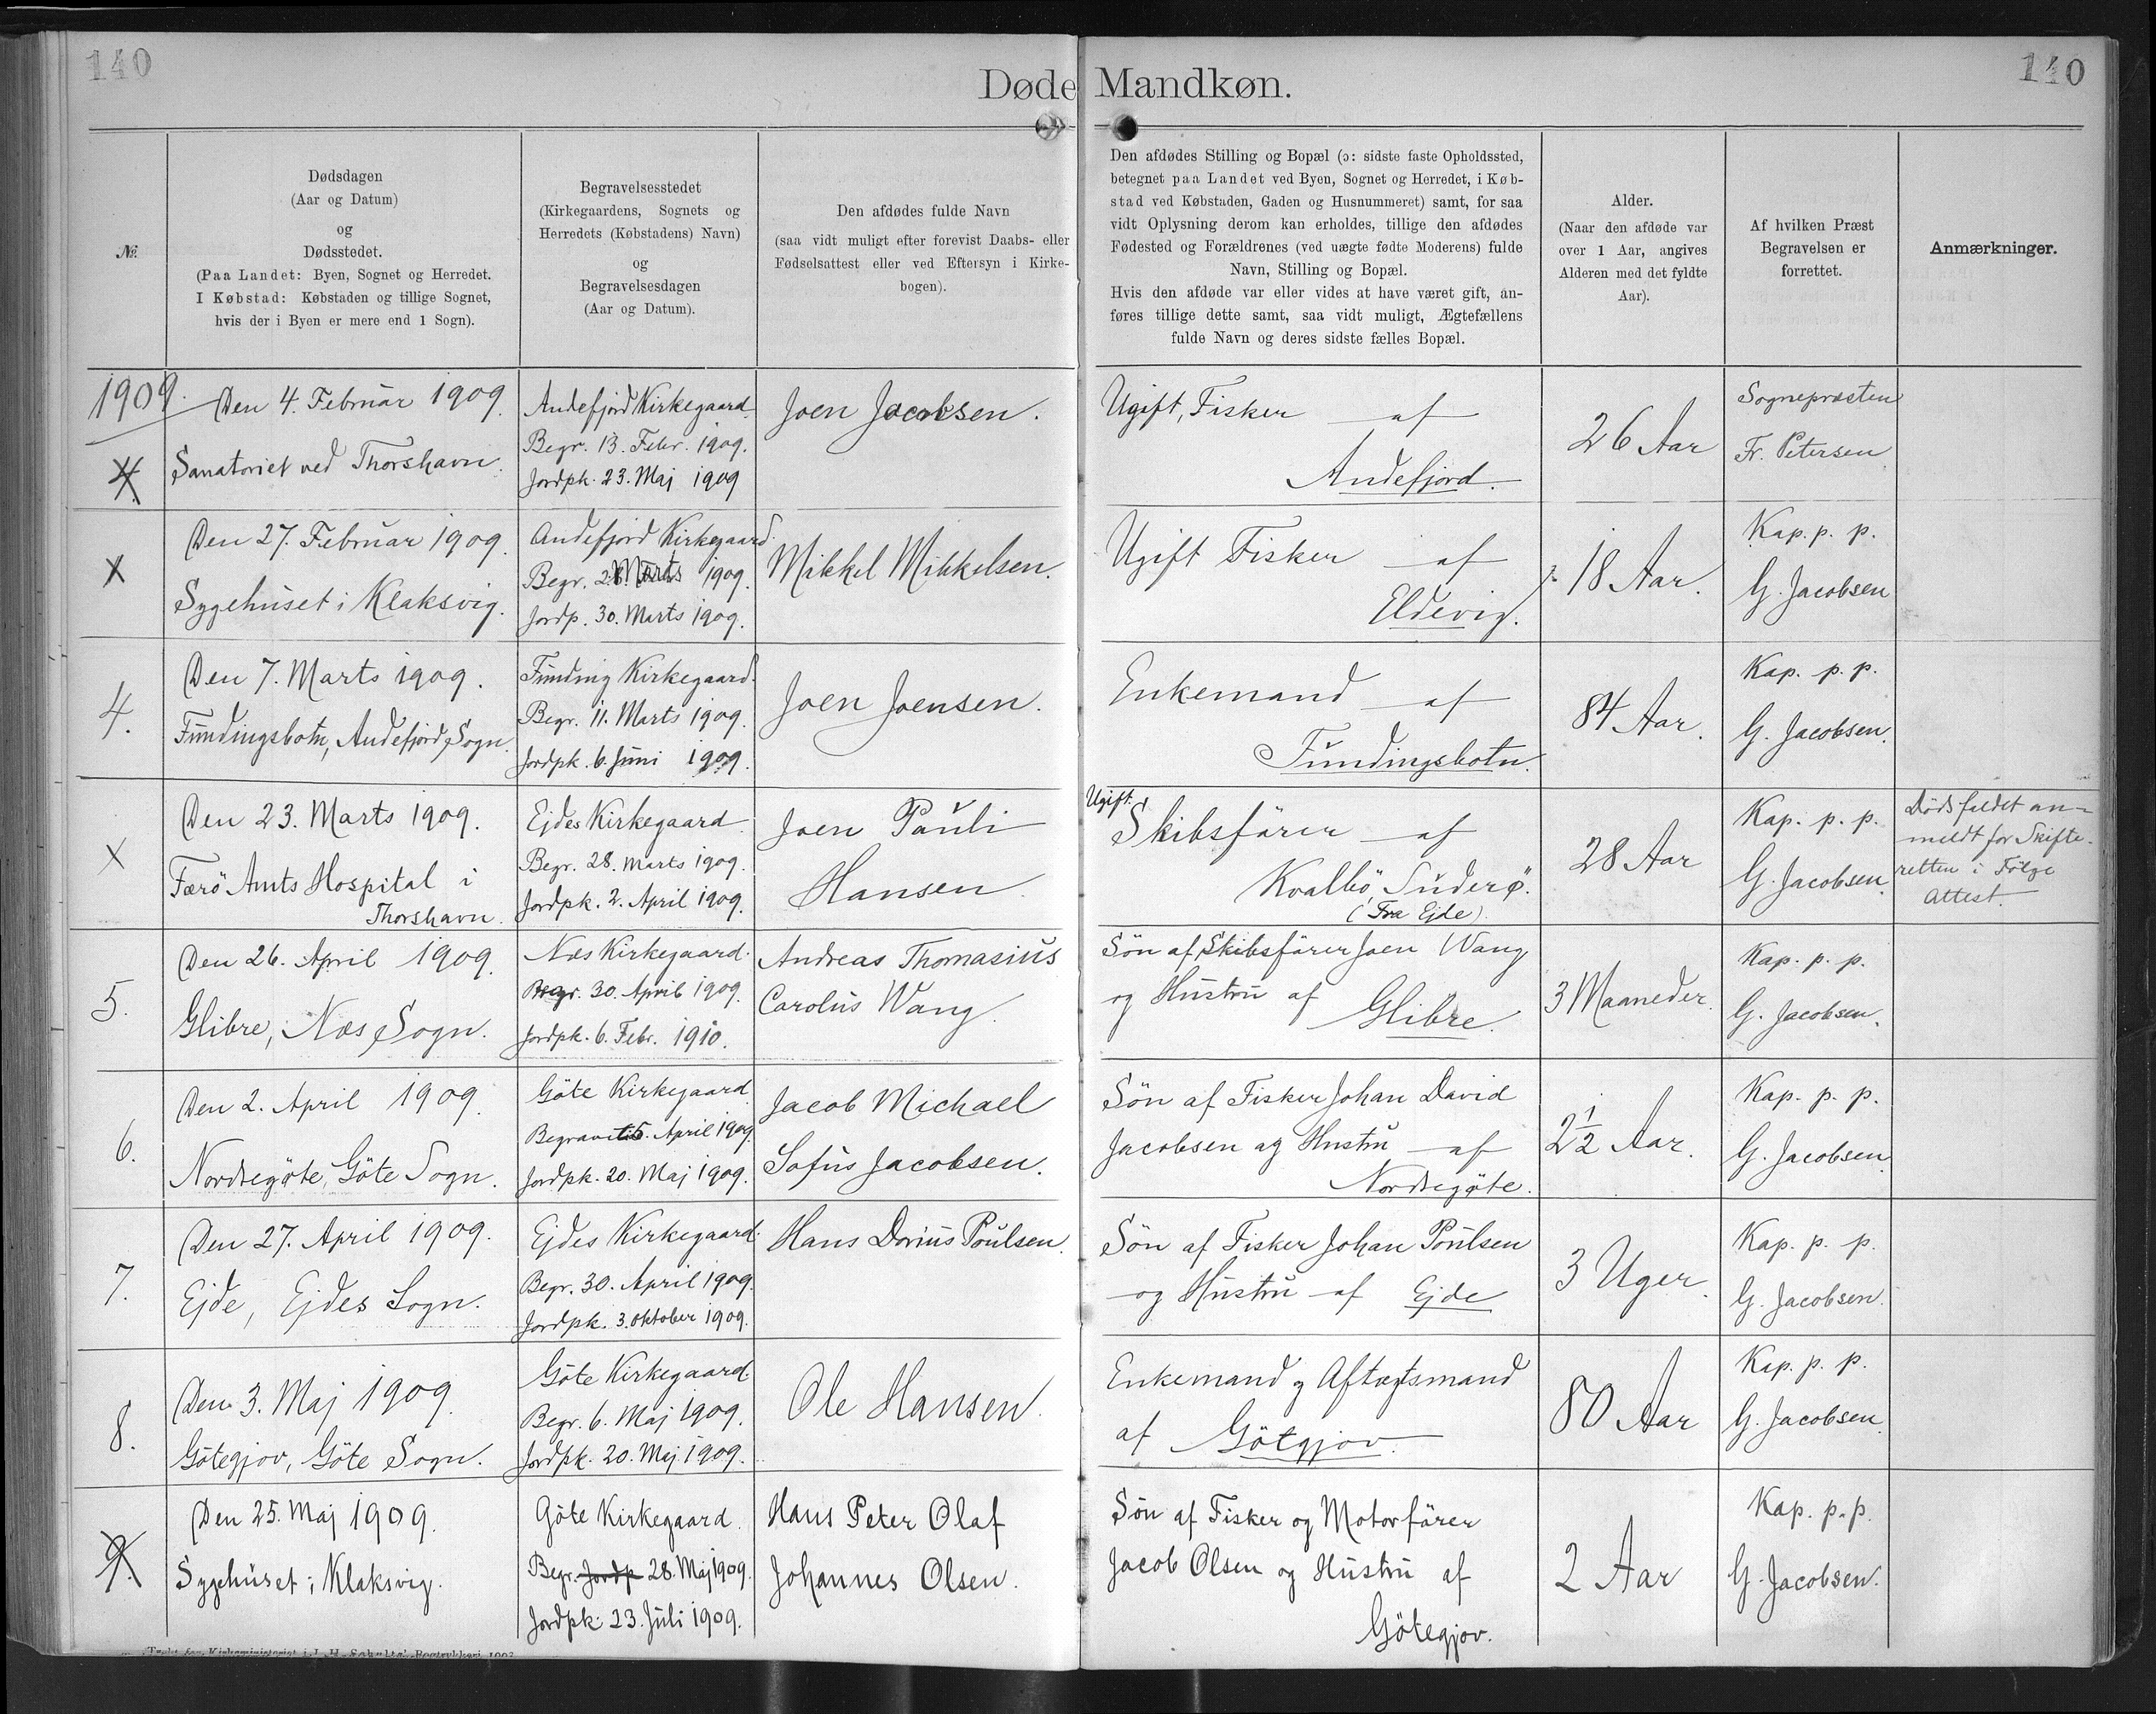 140
140
Døde Mandkøn.
№.
Dødsdagen
(Aar og Datum)
og
Dødsstedet.
(Paa Landet: Byen, Sognet og Herredet.
I Købstad: Købstaden og tillige Sognet,
hvis der i Byen er mere end 1 Sogn).
Begravelsesstedet
(Kirkegaardens, Sognets og
Herredets (Købstadens) Navn)
og
Begravelsesdagen
(Aar og Datum).
Den afdødes fulde Navn
(saa vidt muligt efter forevist Daabs- eller
Fødselsattest eller ved Eftersyn i Kirke-
bogen).
Den afdødes Stilling og Bopæl (ɔ: sidste faste Opholdssted,
betegnet paa Landet ved Byen, Sognet og Herredet, i Køb-
stad ved Købstaden, Gaden og Husnummeret) samt, for saa
vidt Oplysning derom kan erholdes, tillige den afdødes
Fødested og Forældrenes (ved uægte fødte Moderens) fulde
Navn, Stilling og Bopæl.
Hvis den afdøde var eller vides at have været gift, an-
føres tillige dette samt, saa vidt muligt, Ægtefællens
fulde Navn og deres sidste fælles Bopæl.
Alder.
(Naar den afdøde var
over 1 Aar, angives
Alderen med det fyldte
Aar).
Af hvilken Præst
Begravelsen er
forrettet.
Anmærkninger.
1909.
4.
Den 4. Februar 1909.
Sanatoriet ved Thorshavn.
Andefjord Kirkegaard
Begr. 13. Febr. 1909.
Jordpk. 23. Maj 1909
Joen Jacobsen.
Ugift, Fisker af
Andefjord.
26 Aar
Sognepræsten
Fr. Petersen
X
Den 27. Februar 1909.
Sygehuset i Klaksvig.
Andefjord Kirkegaard.
Begr. Marts 1909.
Jordp. 30. Marts 1909.
Mikkel Mikkelsen.
Ugift Fisker af
Eldevig.
18 Aar.
Kap. p. p.
G. Jacobsen
4.
Den 7. Marts 1909.
Fundingsbotn, Andefjord Sogn.
Funding Kirkegaard.
Begr. 11. Marts 1909.
Jordpk. 6. Juni 1909.
Joen Joensen.
Enkemand af
Fundingsbotn.
84 Aar.
Kap. p. p.
G. Jacobsen.
X
Den 23. Marts 1909.
Færö Amts Hospital i
Thorshavn.
Ejdes Kirkegaard
Begr. 28. Marts 1909.
Jordpk. 2. April 1909.
Joen Pauli
Hansen.
Ugift.
Skibsförer af
Kvalbö, Suderø.
(Fra Ejde).
28 Aar
Kap. p. p.
G. Jacobsen.
Dødsfaldet an-
meldt for Skifte-
retten i Følge
Attest.
5.
Den 26. April 1909.
Glibre, Næs Sogn.
Næs Kirkegaard.
Begr. 30. April 1909.
Jordpk. 6. Febr. 1910.
Andreas Thomasius
Carolus Wang.
Søn af Skibsförer Joen Wang
og Hustru af Glibre.
3 Maaneder.
Kap. p. p.
G. Jacobsen.
6.
Den 2. April 1909.
Nordregöte, Göte Sogn.
Göte Kirkegaard
5. April 1909.
Jordpk. 20. Maj 1909.
Jacob Michael
Sofus Jacobsen.
Søn af Fisker Johan David
Jacobsen og Hustru af
Nordregöte.
2 1/2 Aar.
Kap. p. p.
G. Jacobsen.
7.
Den 27. April 1909.
Ejde, Ejdes Sogn.
Ejdes Kirkegaard.
Begr. 30. April 1909.
Jordpk. 3. Oktober 1909.
Hans Dorius Poulsen.
Søn af Fisker Johan Poulsen
og Hustru af Ejde
3 Uger.
Kap. p. p.
G. Jacobsen.
8.
Den 3. Maj 1909.
Götegjov, Göte Sogn.
Göte Kirkegaard.
Begr. 6. Maj 1909.
Jordpk. 20. Maj. 1909.
Ole Hansen.
Enkemand og Aftægtsmand
af Götgjov.
80 Aar
Kap. p. p.
G. Jacobsen.
9.
Den 25. Maj 1909.
Sygehuset i Klaksvig.
Göte Kirkegaard.
Begr. Jordp 28. Maj 1909.
Jordpk. 23. Juli 1909.
Hans Peter Olaf
Johannes Olsen.
Søn af Fisker og Motorförer
Jacob Olsen og Hustru af
Götegjov.
2 Aar
Kap. p. p.
G. Jacobsen.